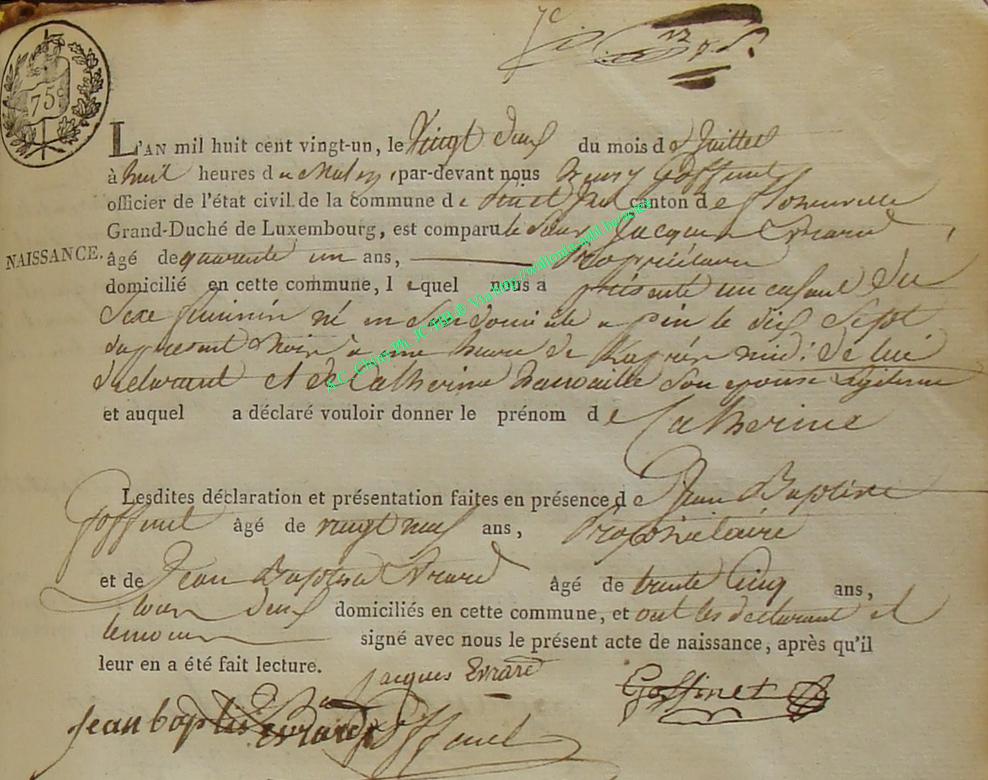 7e
75c
L'AN mil huit cent vingt-un, le Vingt deux du mois de Juillet
à huit heures du Matin, par-devant nous Goffinet
officier de l'état civil de la commune de canton de florenville
Grand-Duché de Luxembourg, est comparu le Sieur Jacques Evrard
NAISSANCE.
âgé de quarante un ans, Propriétaire
domicilié en cette commune, lequel nous a présenté un enfant du
Sexe féminin né en Son domicile le dix Sept
du présent Mois à une heure de Relevée midi de lui
déclarant et de Catherine Son epouse legitime
et auquel a déclaré vouloir donner le prénom de Catherine
Lesdites déclaration et présentation faites en présence de Jean Baptiste
Goffinet âgé de vingt neuf ans, Propriétaire
et de Jean Baptiste Evrard âgé de trente Cinq ans,
tous deux domiciliés en cette commune, et ont les déclarant et
temoins signé avec nous le présent acte de naissance, après qu'il
leur en a été fait lecture.
jacques Evrard
Goffinet
jean baptiste Evrard
Goffinet